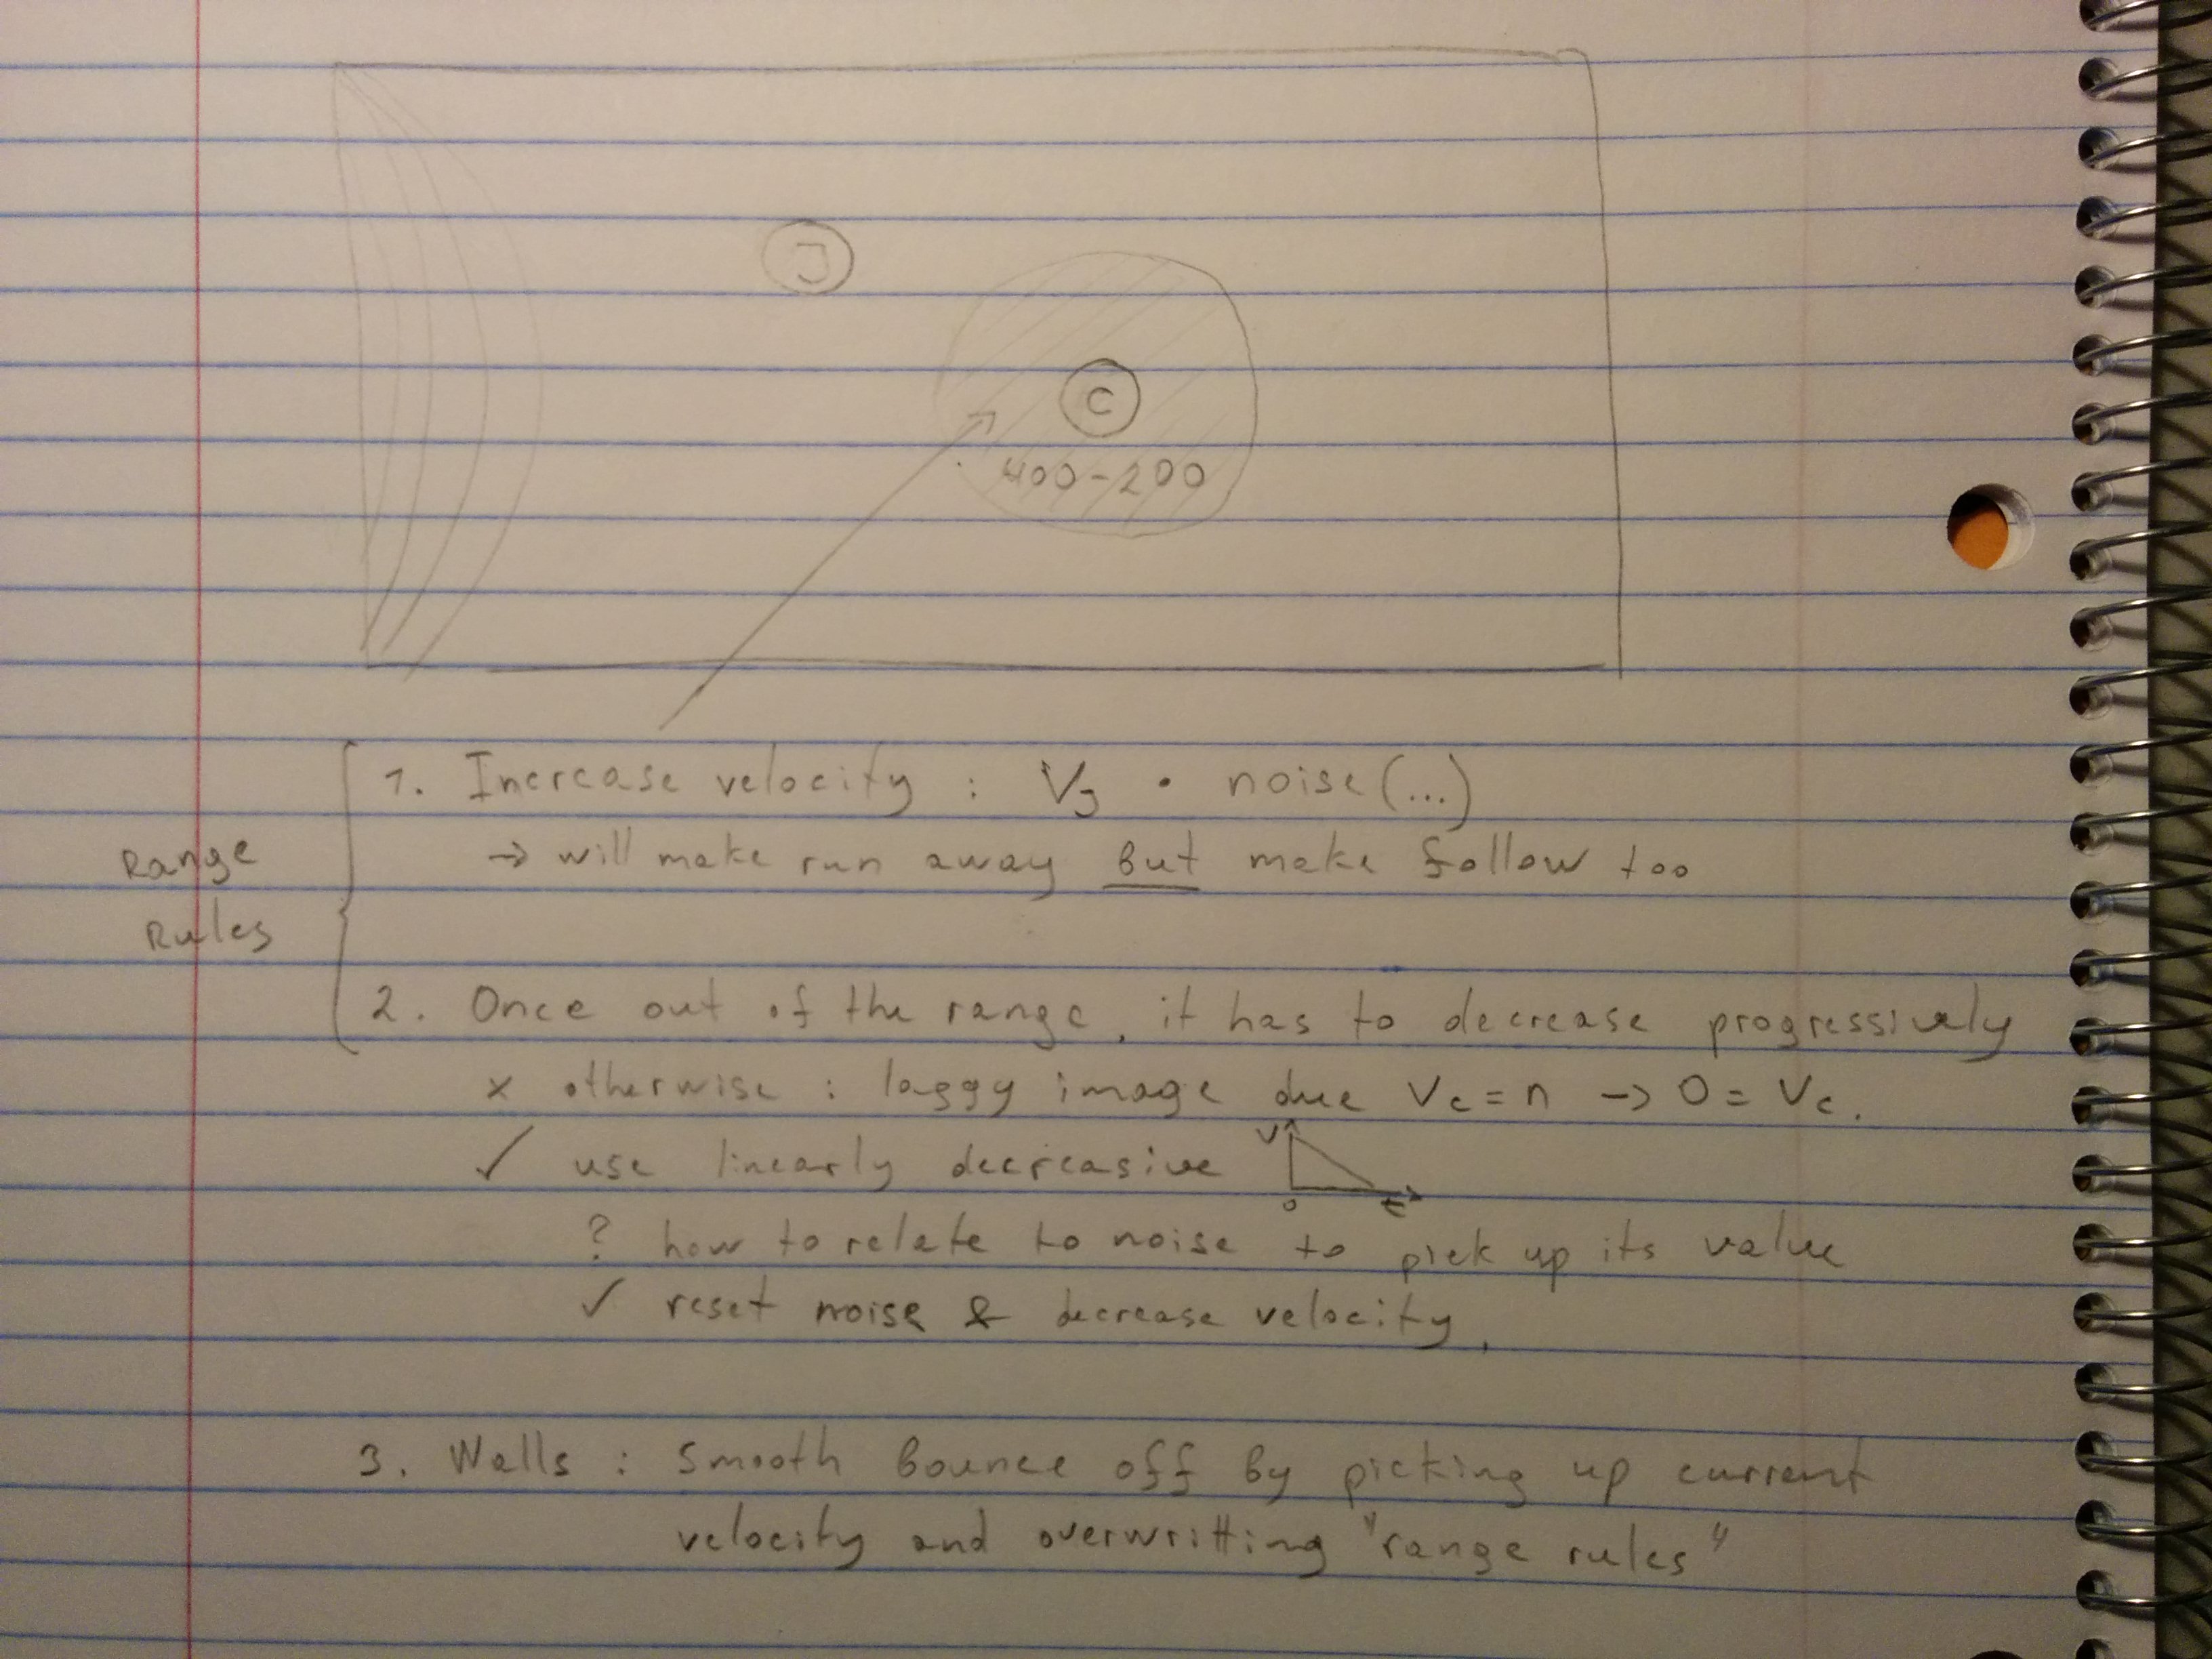 J
C
400-200
1. Increase velocity : VJ · noise(...)
→ will make run away But make follow too
Range
Rules
2. Once out of the range, it has to decrease progressively
x otherwise : laggy image due Vc = n → 0 = Vc.
✓ use linearly decreasive V 0 t
? how to relate to noise to pick up its value
✓ reset noise & decrease velocity.
3. Walls : Smooth Bounce off By picking up current
velocity and overwritting "range rules"